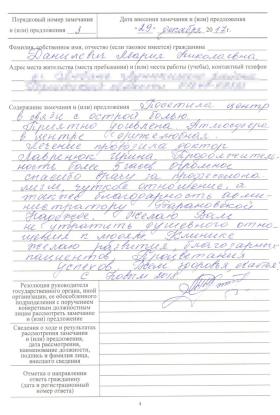 Порядковый номер замечания
и (или) предложения 3
Дата внесения замечания и (или) предложения
«29» декабря 2017г.
Фамилия, собственное имя, отчество (если таковое имеется) гражданина
Данилевич Мария Николаевна
Адрес места жительства (места пребывания) и (или) места работы (учебы), контактный телефон
Содержание замечания и (или) предложения Посетила центр
в связи с острой болью.
Приятно удивлена Атмосфера
в центре
Лечение проводила доктор
Лавренюк Ирина. Продолжитель-
ность более 5 часов. Огромное
спасибо врачу за профессиона-
лизм, чуткое отношение, а
также благодарность адми-
нистратору Барановской
Надежде. Желаю Вам
не утратить душевного отно-
шения к людям. Клинике
желаю развития, благодарных
пациентов, процветания
успехов. Всем здоровья, счастья,
С Новым 2018
Резолюция руководителя
государственного органа, иной
организации, ее обособленного
подразделения с поручением
конкретным должностным
лицам рассмотреть замечание
и (или) предложение
Сведения о ходе и результатах
рассмотрения замечания
и (или) предложения,
дата рассмотрения,
наименование должности,
подпись и фамилия лица,
внесшего сведения
Отметка о направлении
ответа гражданину
(дата и регистрационный
номер ответа)
4